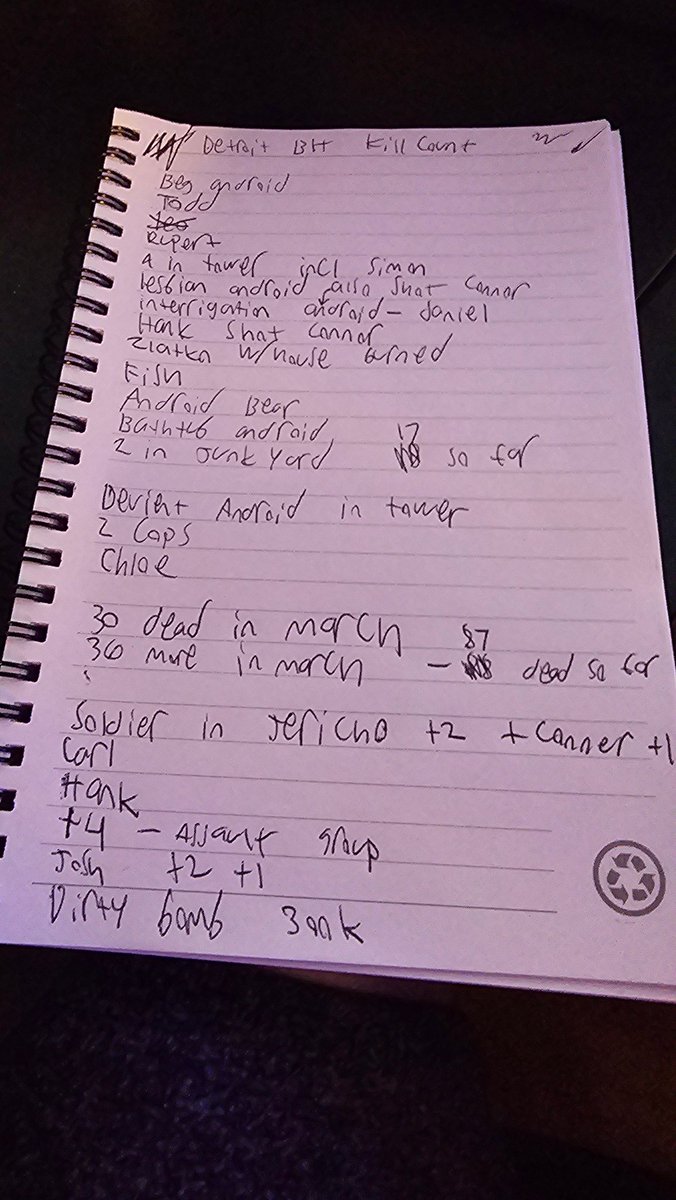 Detroit BH Kill Count
Beg android
Todd
Leo
Rupert
4 in tower incl Simon
lesbian android also shot Connor
interrigation android - Daniel
Hank shot Connor
Zlatko w/house burned
Fish
Android Bear
Bathtub android 17
2 in Junk Yard so far
Devient Android in tower
2 Cops
Chloe
30 dead in march 87
36 more in march - dead so far
Soldier in Jericho +2 + Conner +1
Carl
Hank
+4 - Assault group
Josh +2 +1
Dirty bomb 300k